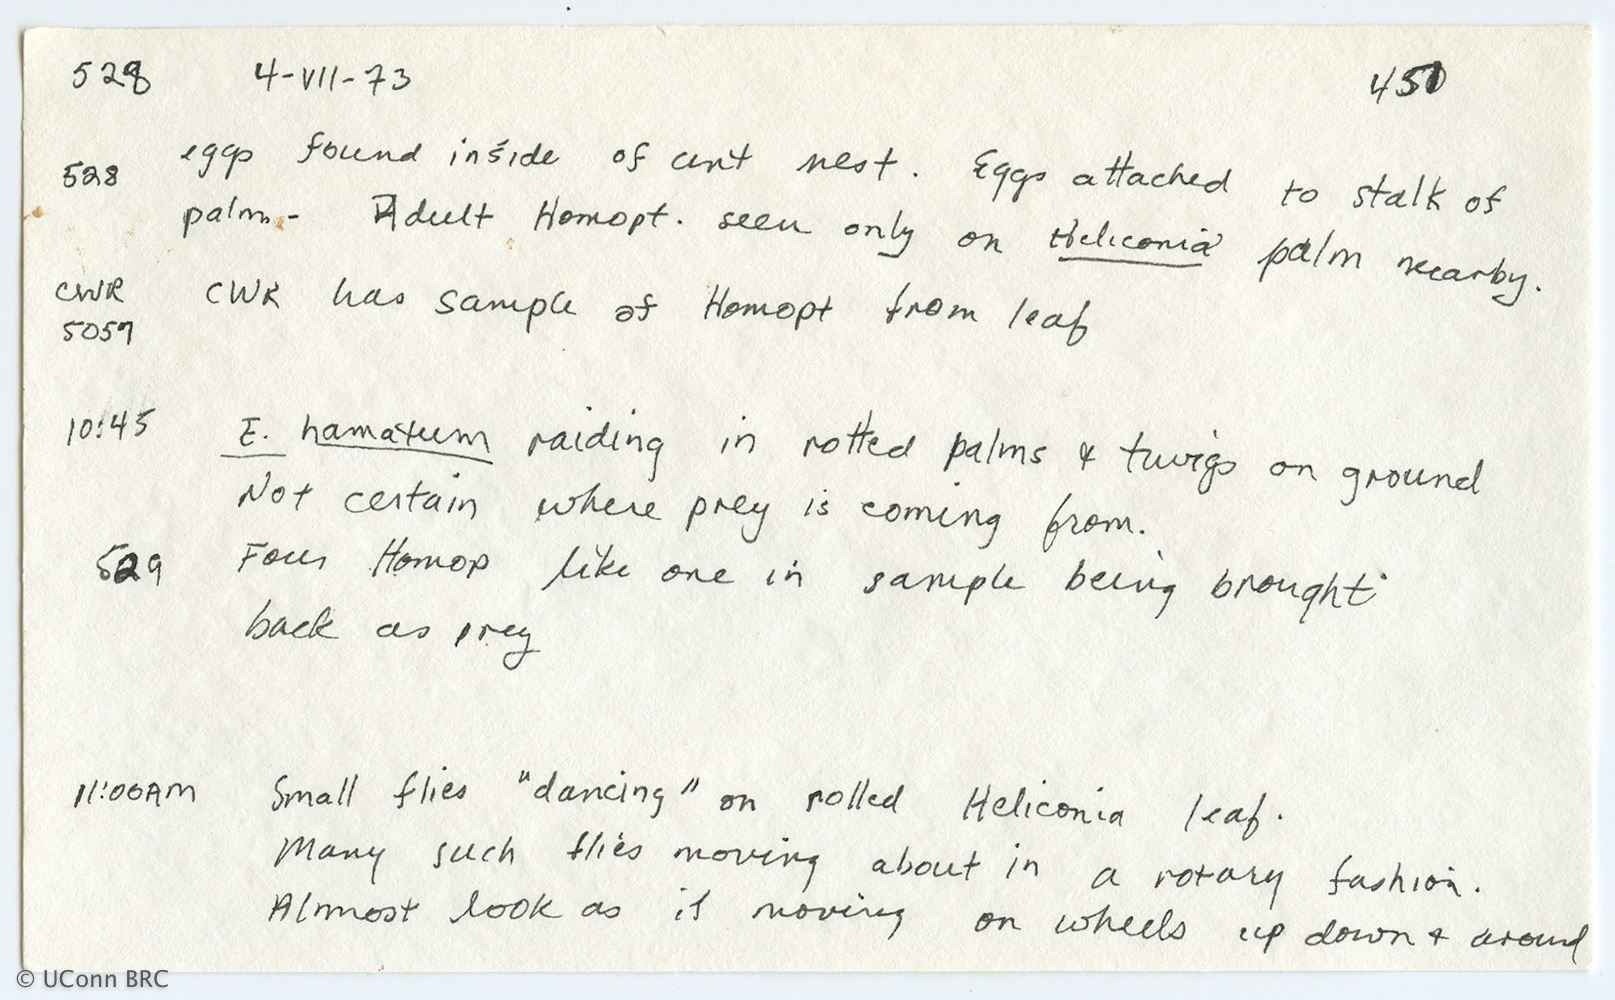 528 4-VII-73 450
528 eggs found inside of ant nest. Eggs attached to stalk of
palm- Adult Homopt. seen only on Heliconia palm nearby.
CWR CWR has sample of Homopt from leaf
5057
10:45 E. hamatum raiding in rotted palms & twigs on ground
Not certain where prey is coming from.
529 Four Homop like one in sample being brought
back as prey
11:00AM Small flies "dancing" on rolled Heliconia leaf.
Many such flies moving about in a rotary fashion.
Almost look as if moving on wheels up down & around
© UConn BRC